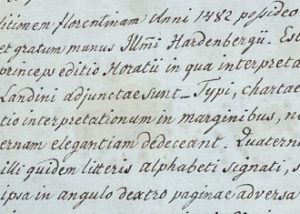 sitionem florentinam Anni 1482 possideo
et gratum munus Illmi Hardenbergii. Est
princeps editio Horatii in qua interpreta
Landini adjunctae sunt. Typi, chartae
tio interpretationum in marginibus, no
ernam elegantiam dedeceant. Quatern
illi quidem litteris alphabeti signati, s
ipsa in angulo dextro paginae adversa